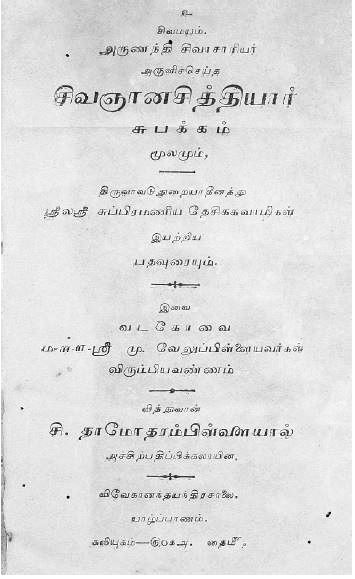 உ
சிவமயம்.
அருணந்தி சிவாசாரியர்
அருளிச்செய்த
சிவஞானசித்தியார்
சுபக்கம்
மூலமும்,
திருவாவடுதுறையாதீனத்து
ஸ்ரீலஸ்ரீ சுப்பிரமணிய தேசிகசுவாமிகள்
இயற்றிய
பதவுரையும்.
இவை
வடகோவை
ம-ள-ள-ஸ்ரீ மு. வேலுப்பிள்ளையவர்கள்
விரும்பியவண்ணம்
வித்துவான்
சி. தாமோதரம்பிள்ளையால்
அச்சிற்பதிப்பிக்கலாயின,
விவேகானந்தயந்திரசாலை,
யாழ்ப்பாணம்.
கலியுகம்— தைமீ.